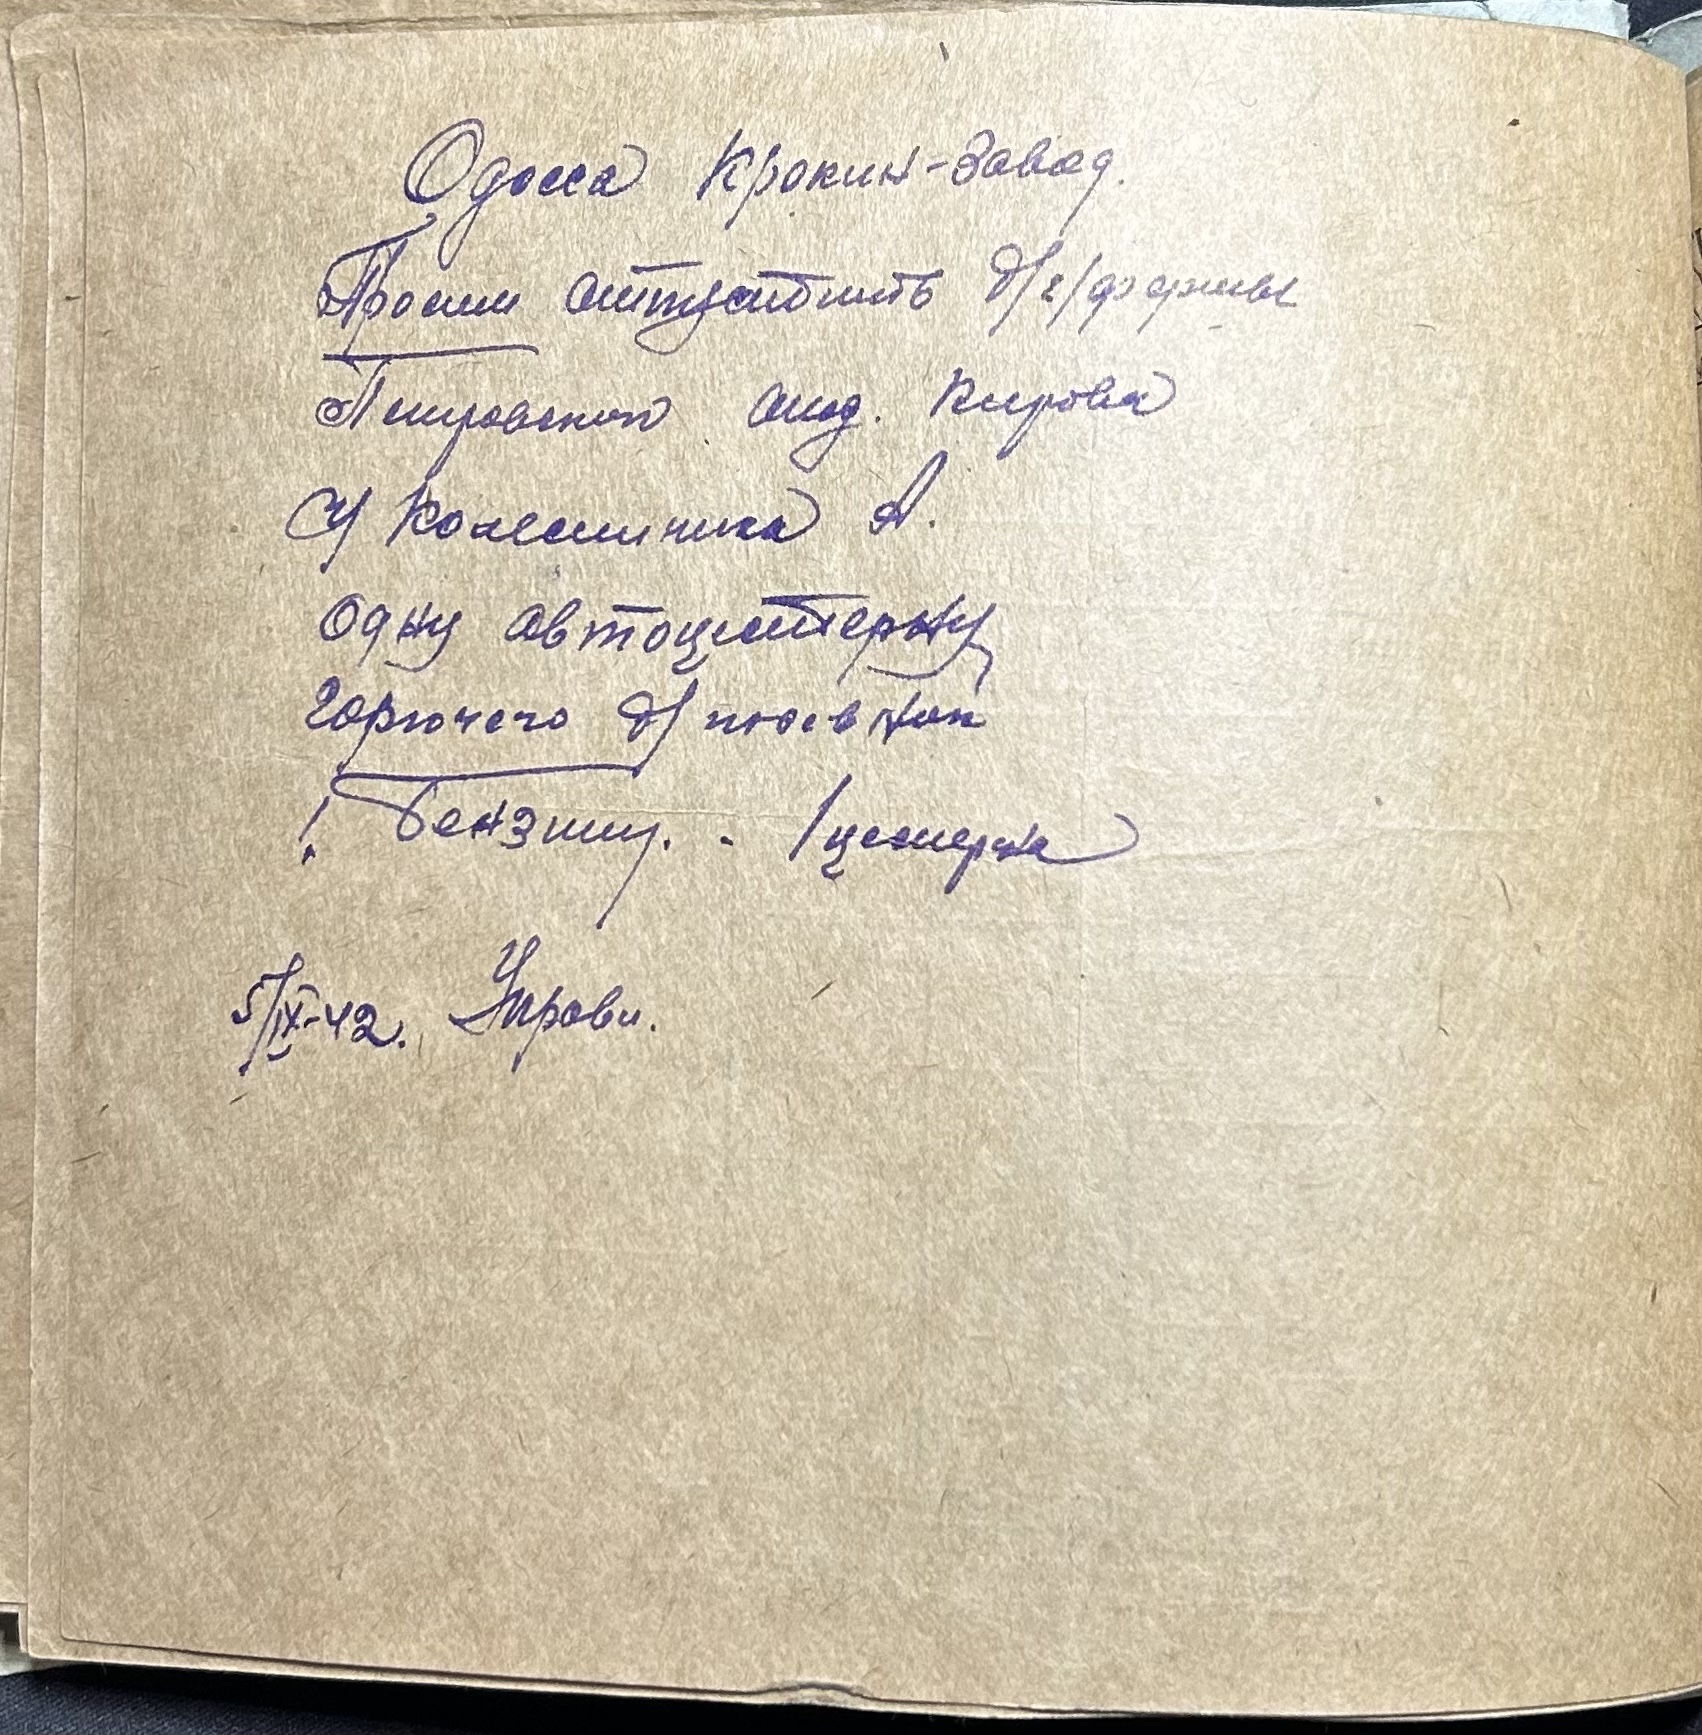 Одесса Крокин-Завод.
Просим отпустить д/г/фермы
Петровской Кирова
У Колесника А.
Одну автоцистерну
горючего д/
! Бензину. - 1 цистерна
5/IX-42. Управи.